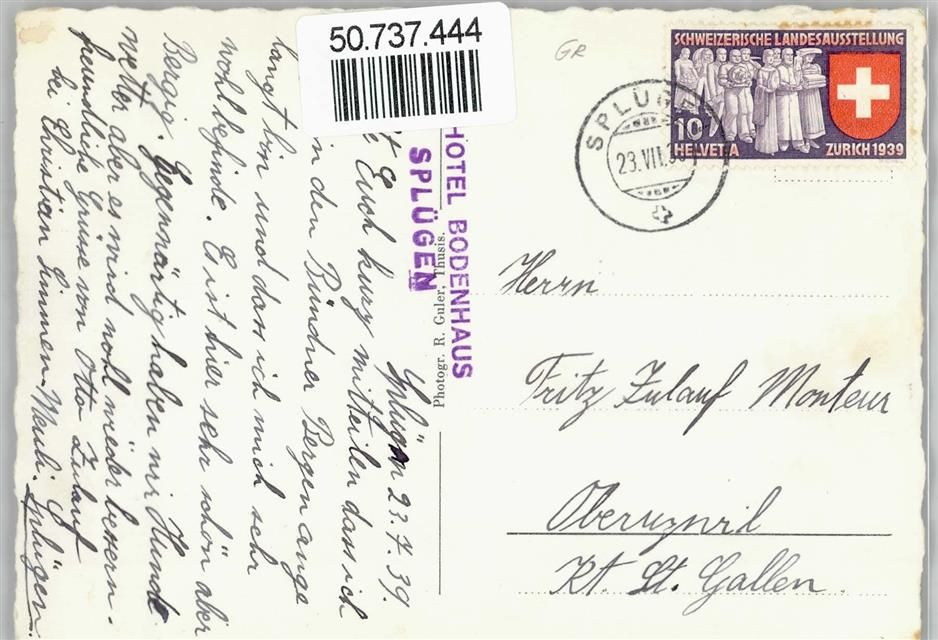 50.737.444
GR
SCHWEIZERISCHE LANDESAUSSTELLUNG
10
HELVETIA
ZURICH 1939
SPLÜGEN
23.VII.39
HOTEL BODENHAUS
SPLÜGEN
Photogr. R. Guler, Thusis.
Splügen 23.7.39.
Euch kurz mitteilen dass ich
in den Bündner Bergen ange
langt bin und dass ich mich sehr
wohl befinde. Es ist hier sehr schön aber
Bergig. Gegenwärtig haben wir Hunde
wetter aber es wird wohl wieder bessern.
freundliche Grüsse von Otto Zulauf
bei Christian Simmen-Meuli. Splügen.
Herrn
Fritz Zulauf Monteur
Oberuzwil
Kt. St. Gallen.